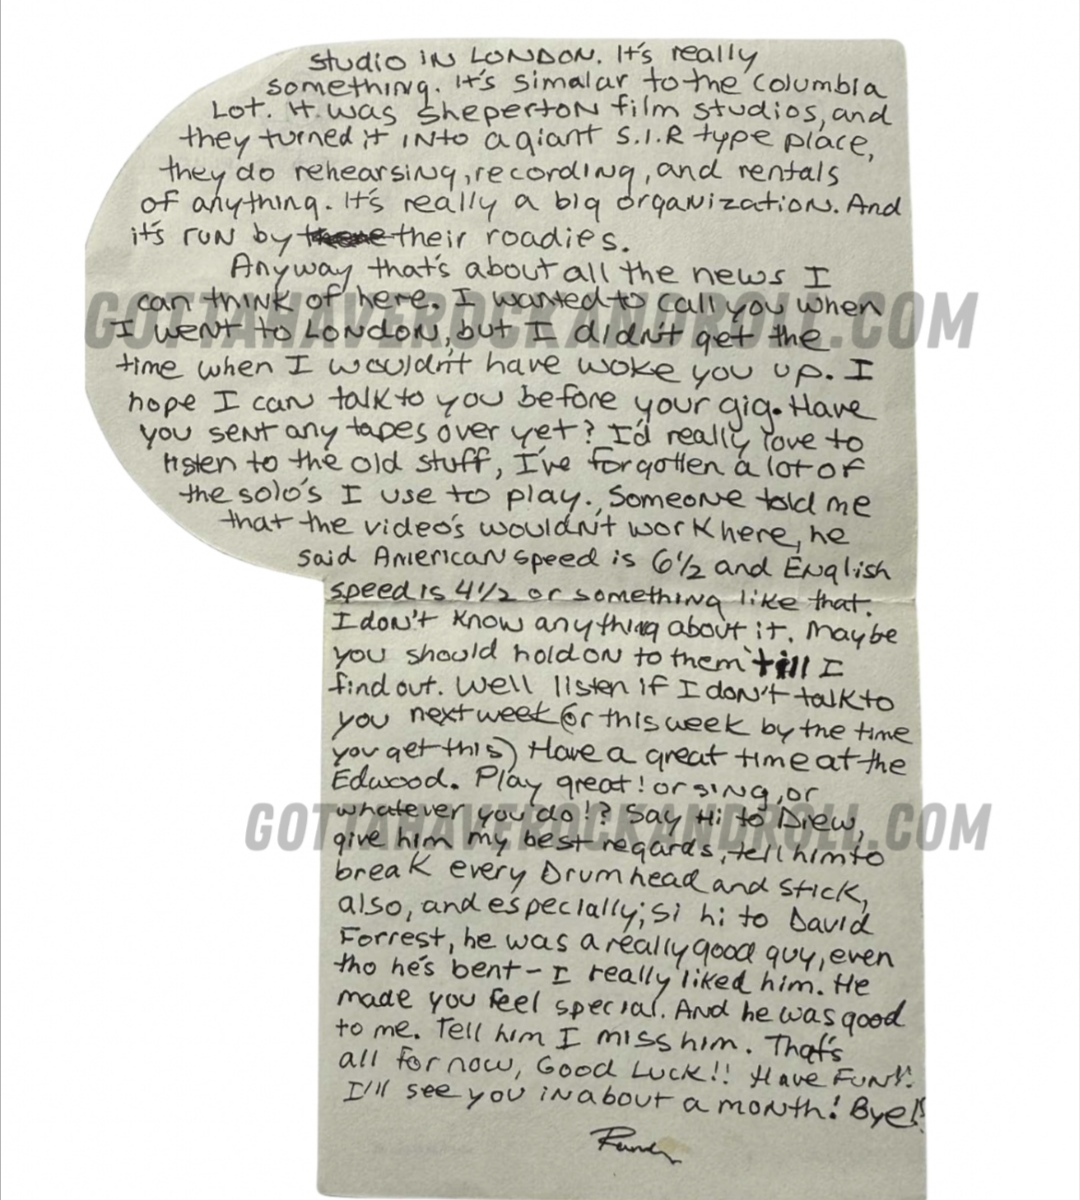 studio in London. It's really
something. It's simalar to the Columbia
Lot. It was Sheperton film studios, and
they turned it into a giant S.I.R type place,
they do rehearsing, recording, and rentals
of anything. It's really a big organization. And
it's run by their roadies.
Anyway that's about all the news I
can think of here. I wanted to call you when
GOTTAHAVEROCKANDROLL.COM
I went to London, but I didn't get the
time when I wouldn't have woke you up. I
hope I can talk to you before your gig. Have
you sent any tapes over yet? I'd really love to
listen to the old stuff, I've forgotten a lot of
the solo's I use to play. Someone told me
that the video's wouldn't work here, he
said American speed is 6 1/2 and English
speed is 4 1/2 or something like that.
I don't know anything about it. Maybe
you should hold on to them till I
find out. Well listen if I don't talk to
you next week (or this week by the time
you get this) Have a great time at the
Edwood. Play great! or sing, or
whatever you do!? Say Hi to Drew,
GOTTAHAVEROCKANDROLL.COM
give him my best regards, tell him to
break every Drum head and stick,
also, and especially; si hi to David
Forrest, he was a really good guy, even
tho he's bent - I really liked him. He
made you feel special. And he was good
to me. Tell him I miss him. That's
all for now, Good Luck!! Have Fun!!
I'll see you in about a month! Bye!!